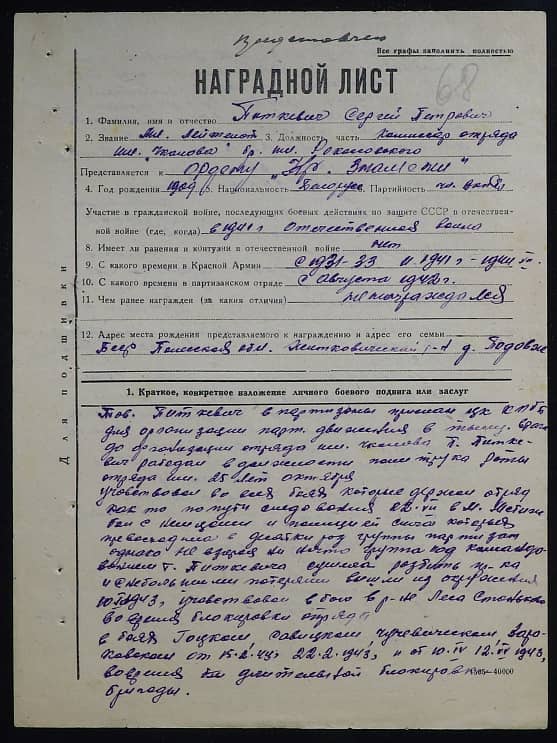 Все графы заполнить полностью
68
НАГРАДНОЙ ЛИСТ
1. Фамилия, имя и отчество Питкевич Сергей Петрович
2. Звание Мл. Лейтенат 3. Должность, часть комиссар отряда
им. "Чкалова" бр. им. Рокоссовского
Представляется к Ордену "Кр. Знамени"
4. Год рождения 1909 5. Национальность Белорус 6. Партийность чл. ВКП(б)
Участие в гражданской войне, последующих боевых действиях по защите СССР в отечествен-
ной войне (где, когда) в 1941 г Отечественная война
8. Имеет ли ранения и контузии в отечественной войне нет
9. С какого времени в Красной Армии с 1931-33 и 1941 г -
10. С какого времени в партизанском отряде с Августа 1942 г.
11. Чем ранее награжден (за какие отличия) не награждался
12. Адрес места рождения представляемого к награждению и адрес его семьи
Бсср Полесская обл. Житковический р-н д.
Для подшивки
1. Краткое, конкретное изложение личного боевого подвига или заслуг
Тов. Питкевич в партизаны прислан цк КП(б)Б
для организации парт. движения в тылу врага
до организации отряда им. Чкалова т. Питке-
вич работал в должности политрука роты
отряда им. 25 лет октября
участвовал во всех боях которые держал отряд
как то по пути следования 22.
бой с немцами и полицией сила которых
превосходила в десятки раз группы партизан
однако не взирая ни на что группа под командо-
ванием т. Питкевича сумела разбить пр-ка
и с небольшими потерями вышли из окружения
1943, участвовал в бою в р-не Леса
во время блокировки отряда
в боях
от 15.2.43, 22.2.1943, и от 10. 12. 1943,
во время длительной блокировки
бригады.
40000